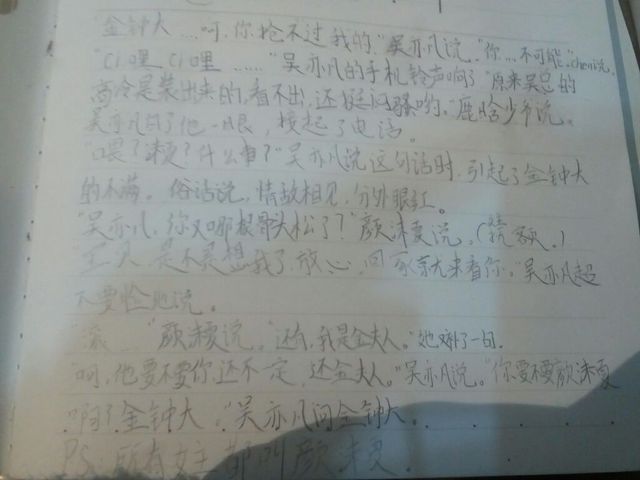 "金钟大…呵,你抢不过我的,"吴亦凡说."你…不可能."chen说.
"Ci哩 Ci哩……"吴亦凡的手机铃声响了"原来吴总的
高冷是装出来的,看不出,还挺闷骚哟。"鹿晗少爷说。
吴亦凡白了他一眼,接起了电话。
"喂?沫夏?什么事?"吴亦凡说这句话时,引起了金钟大
的不满。俗话说,情敌相见,分外眼红。
"吴亦凡,你又哪根骨头松了?"颜沫夏说。
是不是想我了,放心,回家就来看你。"吴亦凡超
不要脸地说。
"滚"颜沫夏说,"还有,我是金夫人。"她又补了一句.
"呵,他要不要你还不一定,还金夫人。"吴亦凡说。"你要不要颜沫夏
啊?金钟大。"吴亦凡问金钟大。
PS:所有女主都叫颜沫夏.